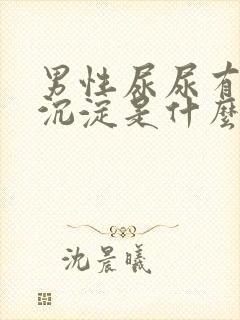 男性尿尿有
沉淀是什麼
沈晨曦